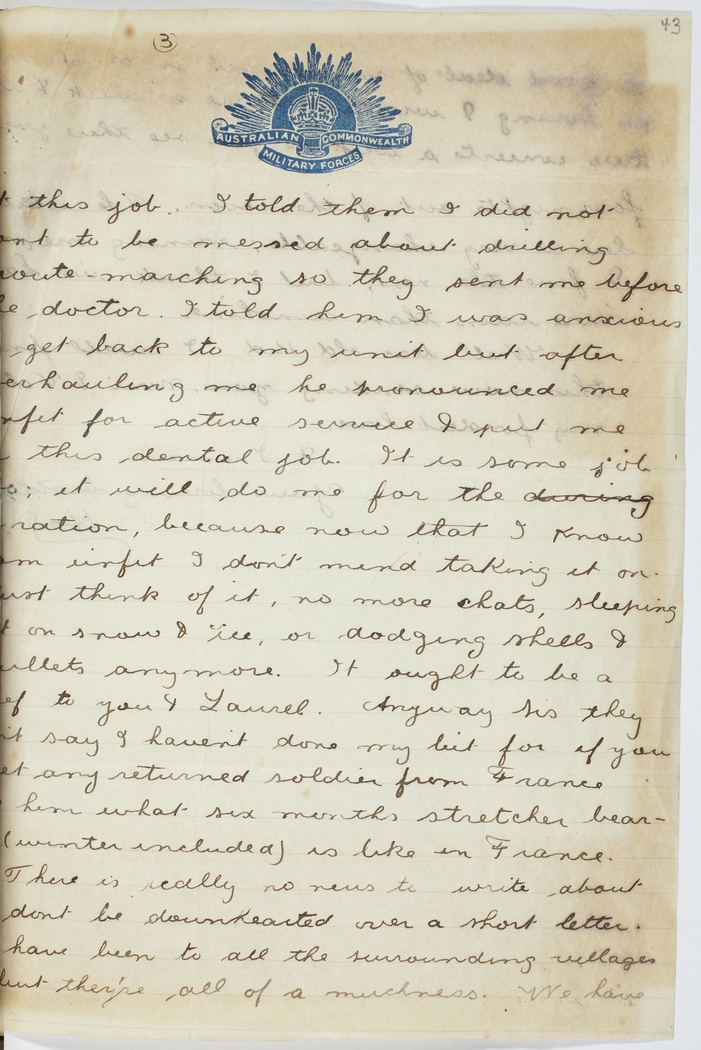 43
3
AUSTRALIAN COMMONWEALTH
MILITARY FORCES
t this job. I told them I did not
ant to be messed about drilling
route-marching so they sent me before
e doctor. I told him I was anxious
get back to my unit but after
erhauling me he pronounced me
nfit for active service & put me
this dental job. It is some job
; it will do me for the during
ration, because now that I know
am unfit I don't mind taking it on.
ust think of it, no more chats, sleeping
t on snow & ice, or dodging shells &
ullets anymore. It ought to be a
ef to you & Laurel. Anyway Sis they
n't say I havent done my bit for if you
et any returned soldier from France
him what six months stretcher bear-
(winter included) is like in France.
There is really no news to write about
dont be downhearted over a short letter.
have been to all the surrounding villages
but they're all of a muchness. We have